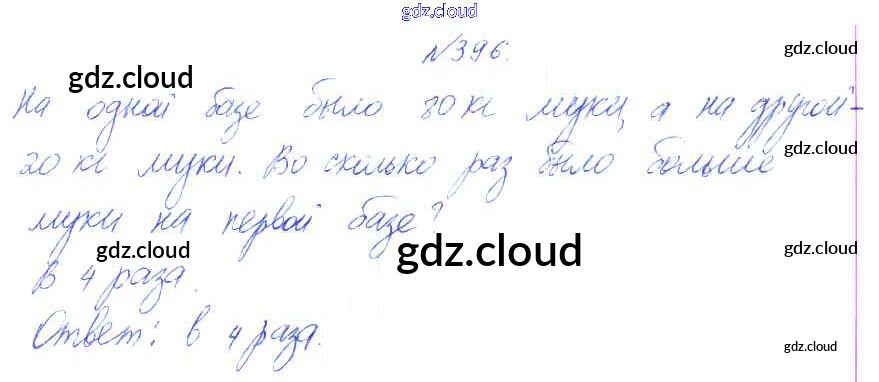 gdz.cloud
№396.
gdz.cloud
gdz.cloud
На одной базе было 80 кг муки, а на другой -
gdz.cloud
20 кг муки. Во сколько раз было больше
муки на первой базе?
gdz.cloud
gdz.cloud
gdz.cloud
В 4 раза.
Ответ: в 4 раза.
gdz.cloud